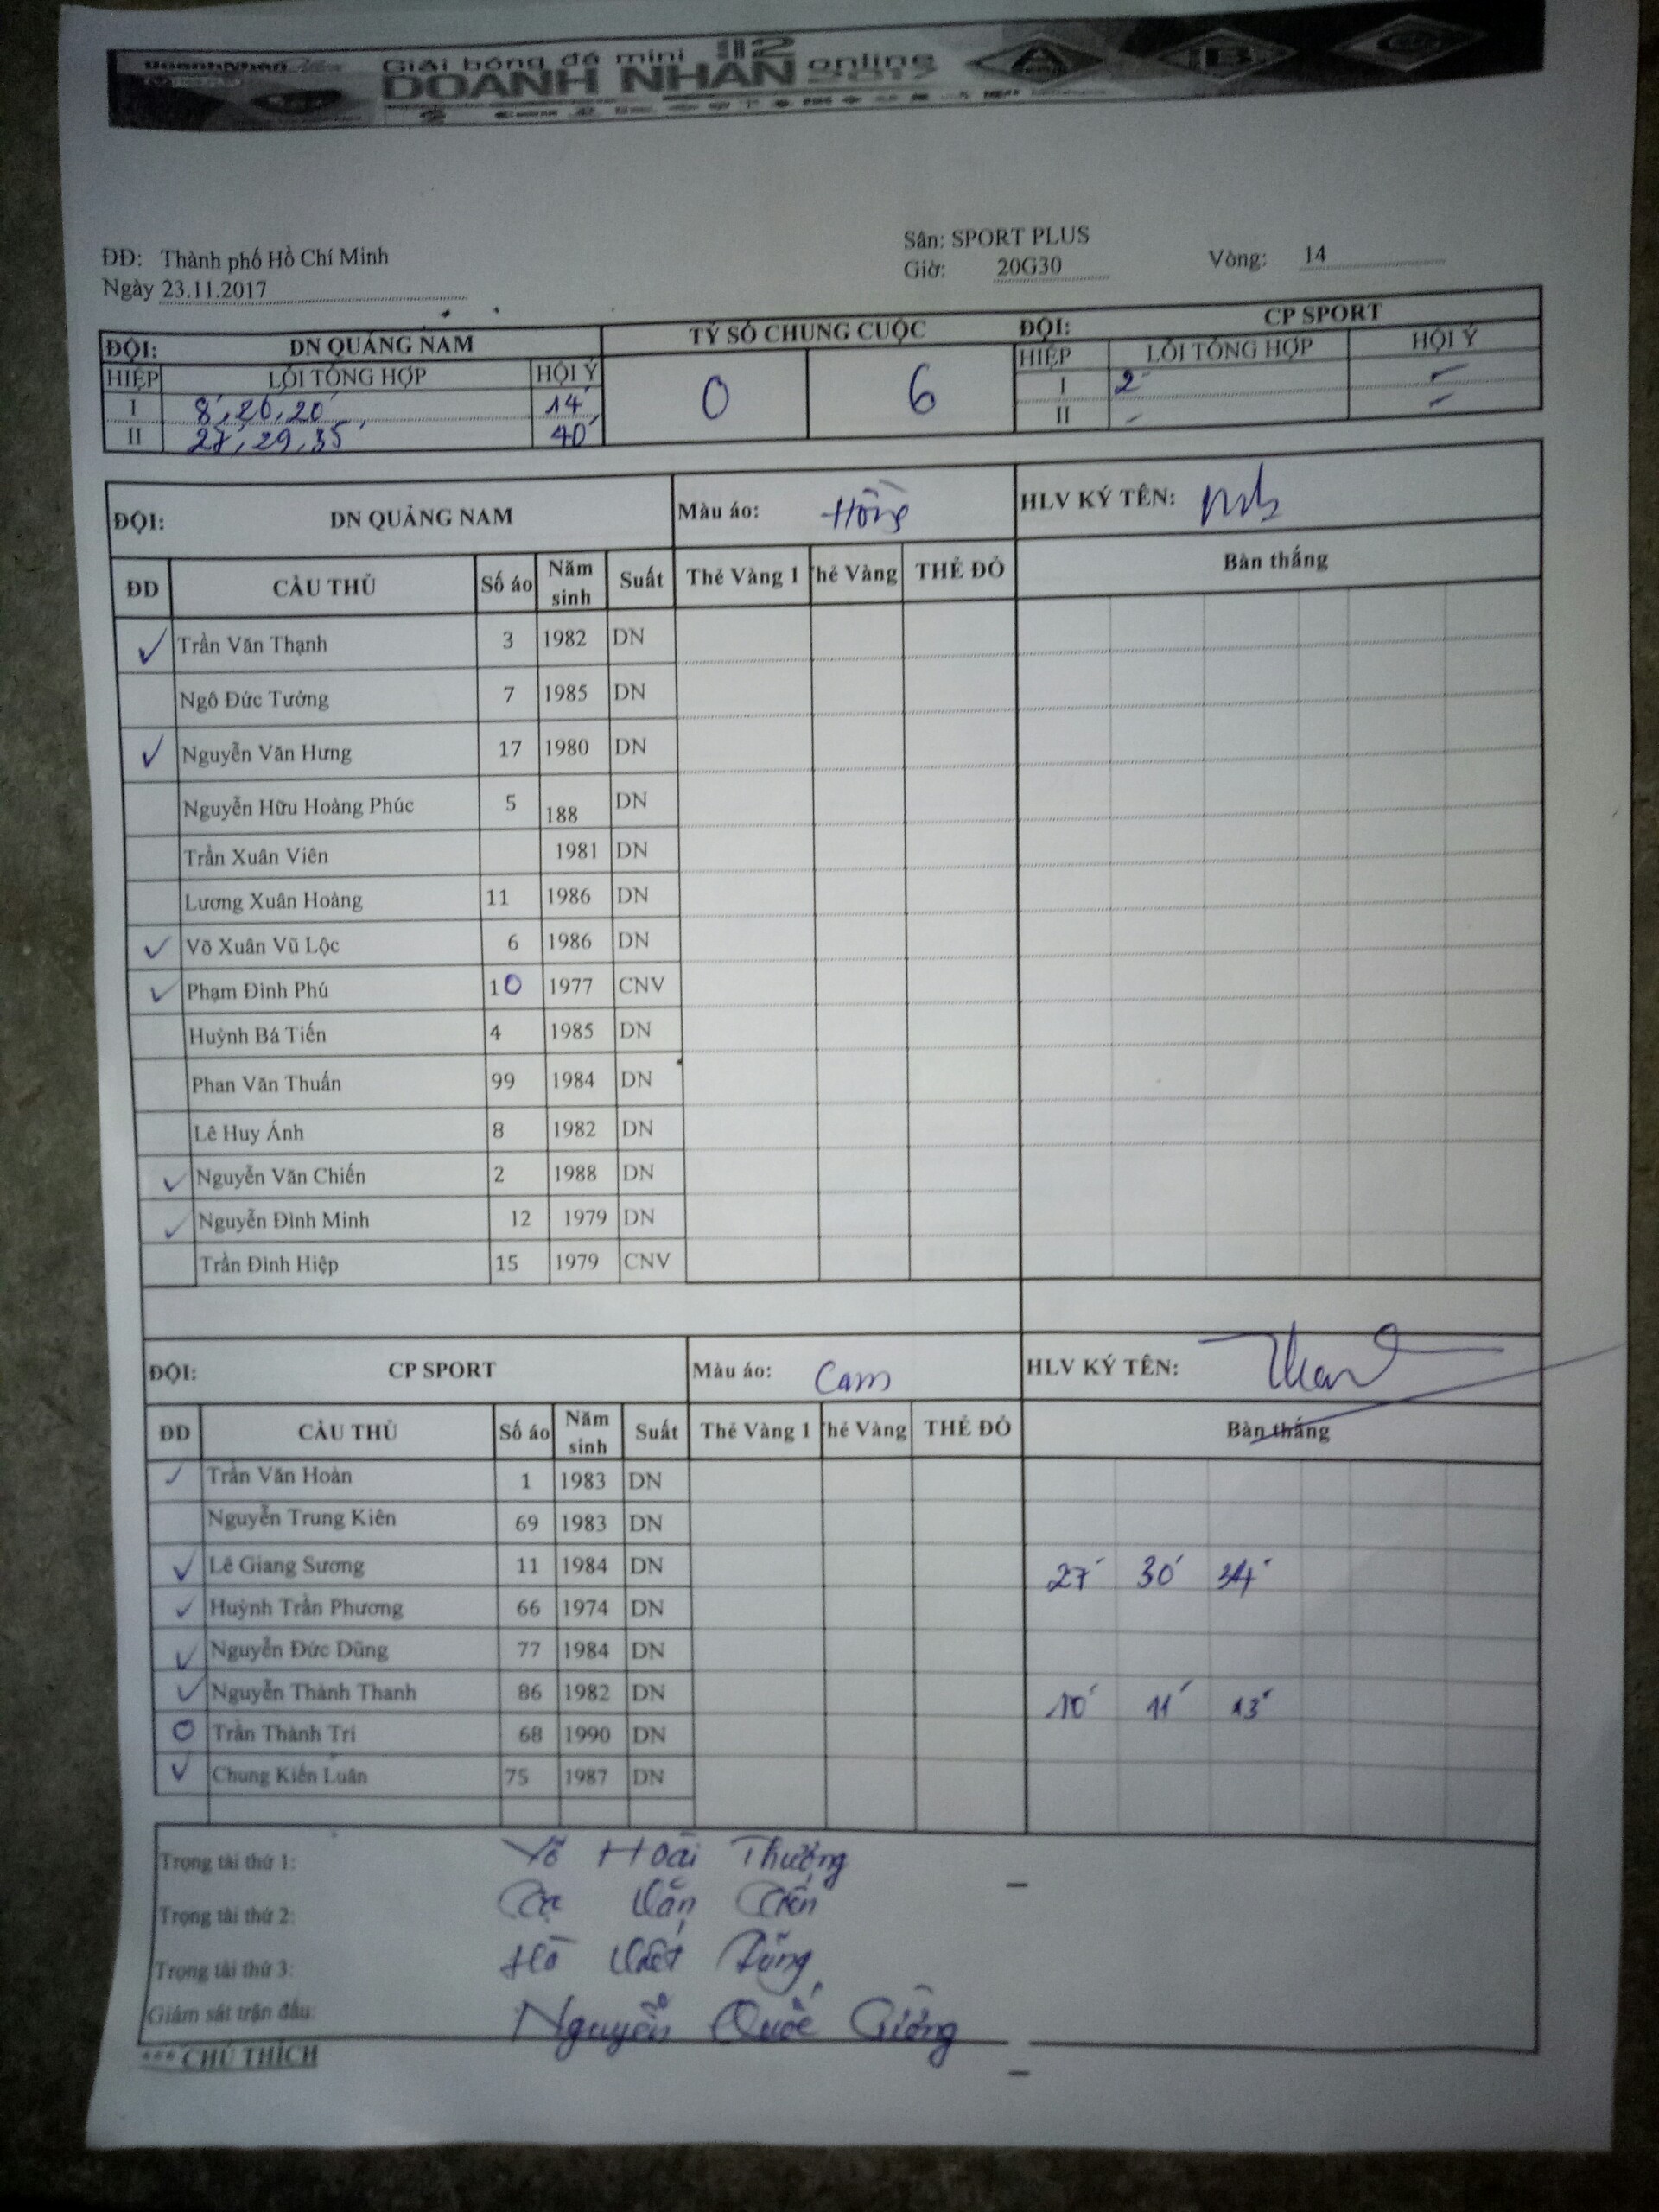 Giải bóng đá mini
DOANH NHÂN online
2017
ĐĐ: Thành phố Hồ Chí Minh Sân: SPORT PLUS
Ngày 23.11.2017 Giờ: 20G30 Vòng: 14
ĐỘI: DN QUẢNG NAM TỶ SỐ CHUNG CUỘC ĐỘI: CP SPORT
HIỆP LỖI TỔNG HỢP HỘI Ý HIỆP LỖI TỔNG HỢP HỘI Ý
I 8', 20, 20' 14' 0 6 I 2' -
II 27', 29, 35' 40' II - -
ĐỘI: DN QUẢNG NAM Màu áo: Hồng HLV KÝ TÊN:
ĐD CẦU THỦ Số áo Năm sinh Suất Thẻ Vàng 1 hẻ Vàng THẺ ĐỎ Bàn thắng
✓ Trần Văn Thạnh 3 1982 DN
Ngô Đức Tưởng 7 1985 DN
✓ Nguyễn Văn Hưng 17 1980 DN
Nguyễn Hữu Hoàng Phúc 5 188 DN
Trần Xuân Viên 1981 DN
Lương Xuân Hoàng 11 1986 DN
✓ Võ Xuân Vũ Lộc 6 1986 DN
✓ Phạm Đình Phú 10 1977 CNV
Huỳnh Bá Tiến 4 1985 DN
Phan Văn Thuấn 99 1984 DN
Lê Huy Ánh 8 1982 DN
✓ Nguyễn Văn Chiến 2 1988 DN
✓ Nguyễn Đình Minh 12 1979 DN
Trần Đình Hiệp 15 1979 CNV
ĐỘI: CP SPORT Màu áo: Cam HLV KÝ TÊN:
ĐD CẦU THỦ Số áo Năm sinh Suất Thẻ Vàng 1 hẻ Vàng THẺ ĐỎ Bàn thắng
✓ Trần Văn Hoàn 1 1983 DN
Nguyễn Trung Kiên 69 1983 DN
✓ Lê Giang Sương 11 1984 DN 27' 30' 34'
✓ Huỳnh Trần Phương 66 1974 DN
✓ Nguyễn Đức Dũng 77 1984 DN
✓ Nguyễn Thành Thanh 86 1982 DN 10' 11' 13'
O Trần Thành Trí 68 1990 DN
✓ Chung Kiến Luân 75 1987 DN
Trọng tài thứ 1: Võ Hoài Thượng
Trọng tài thứ 2: Văn
Trọng tài thứ 3: Hồ Việt Dũng
Giám sát trận đấu: Nguyễn Quốc Cường
*** CHÚ THÍCH